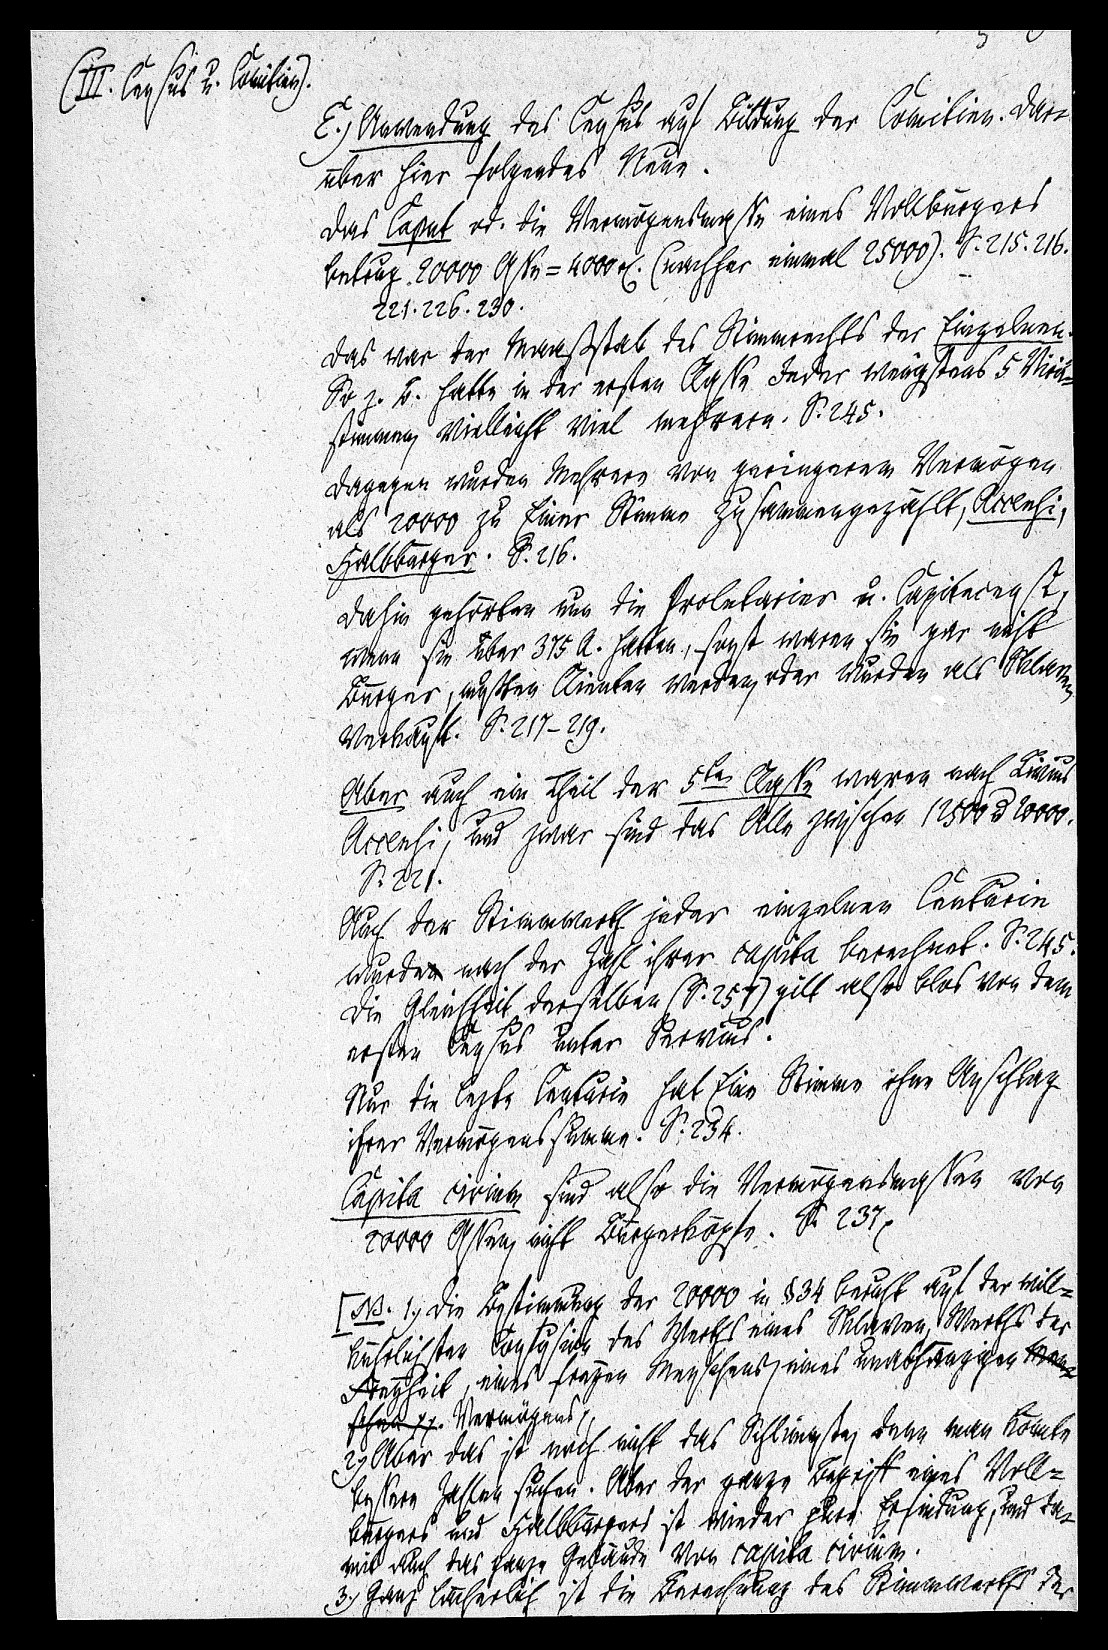 (III. Census u. Comitien).
E.) Anwendung des Census auf Bildung der Comitien. Dar-
über hier folgendes Neue.
Das Caput od. die Vermögensmasse eines Vollbürgers
betrug 20000 Asse = 4000 (nachher einmal 25000). S. 215. 216.
221. 226. 230.
Das war der Maaßstab des Stimmrechts der Einzelnen.
So z. B. hatte in der ersten Classe Jeder wenigstens 5
stimmen, vielleicht viel mehrere. S. 245.
Dagegen wurden Mehrere von geringerem Vermögen
als 20000 zu Einer Stimme zusammengezählt, Accensi,
Halbbürger. S. 216.
Dahin gehörten nun die Proletarier u. Capite censi,
wenn sie über 375 A. hatten, sonst waren sie gar nicht
Bürger, mußten Clienten werden, oder wurden als Sklaven
verkauft. S. 217-219.
Aber auch ein Theil der 5ten Classe waren nach Livius
Accensi, und zwar sind das Alle zwischen 12500 u 20000.
S. 221.
Auch der Stimmwerth jeder einzelnen Centurie
wurde nach der Zahl ihrer capita berechnet. S. 245.
Die Gleichheit derselben (S. 257) gilt also blos von dem
ersten Census unter Servius.
Nur die lezte Centurie hat Eine Stimme ohne Anschlag
ihrer Vermögenssumme. S. 234.
Capita civium sind also die Vermögensmassen von
20000 Assen, nicht Bürgerköpfe. S. 237.
[NB. 1.) Die Bestimmung der 20000 in § 34 beruht auf der will-
kührlichsten Confusion des Werths eines Sklaven, Werths der
Freyheit, eines freyen Menschen, eines unabhängigen Men-
schen pp. Vermögens,
2.) Aber das ist noch nicht das Schlimmste, denn man könnte
bessere Zahlen suchen. Aber der ganze Begriff eines Voll-
bürgers und Halbbürgers ist wieder pure Erfindung, und da-
mit auch das ganze Gebäude von capita civium.
3.) Ganz lächerlich ist die Berechnung des Stimmwerths der